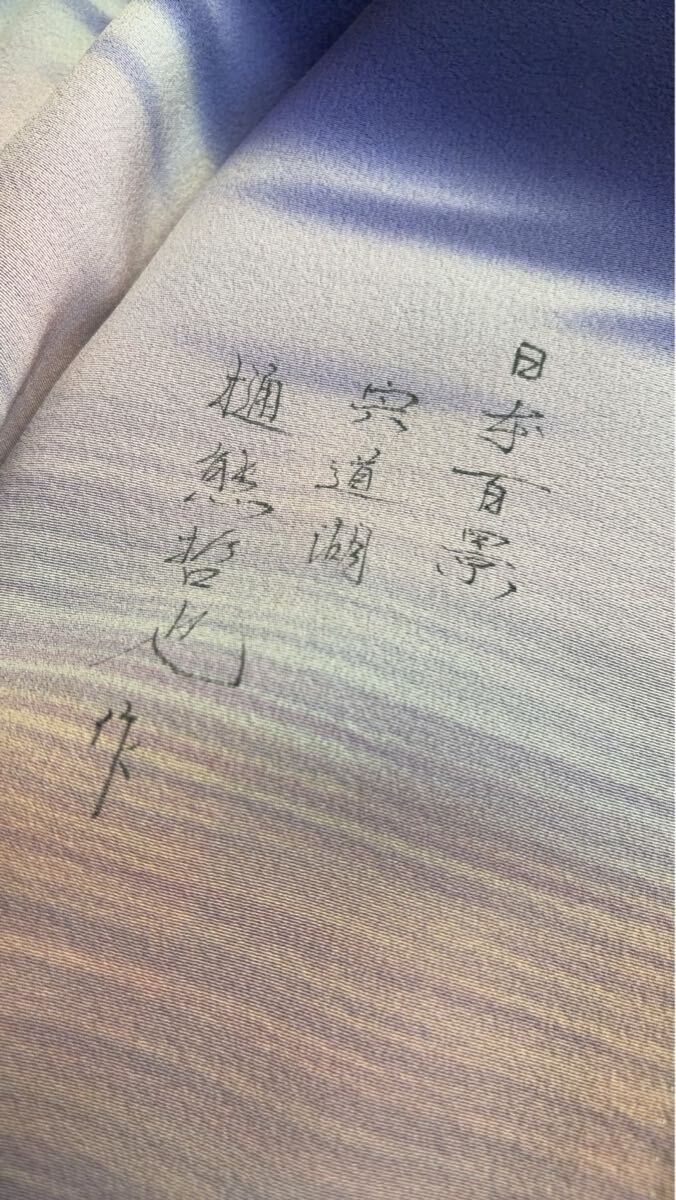 日本百景
宍道湖
樋熊哲也
作